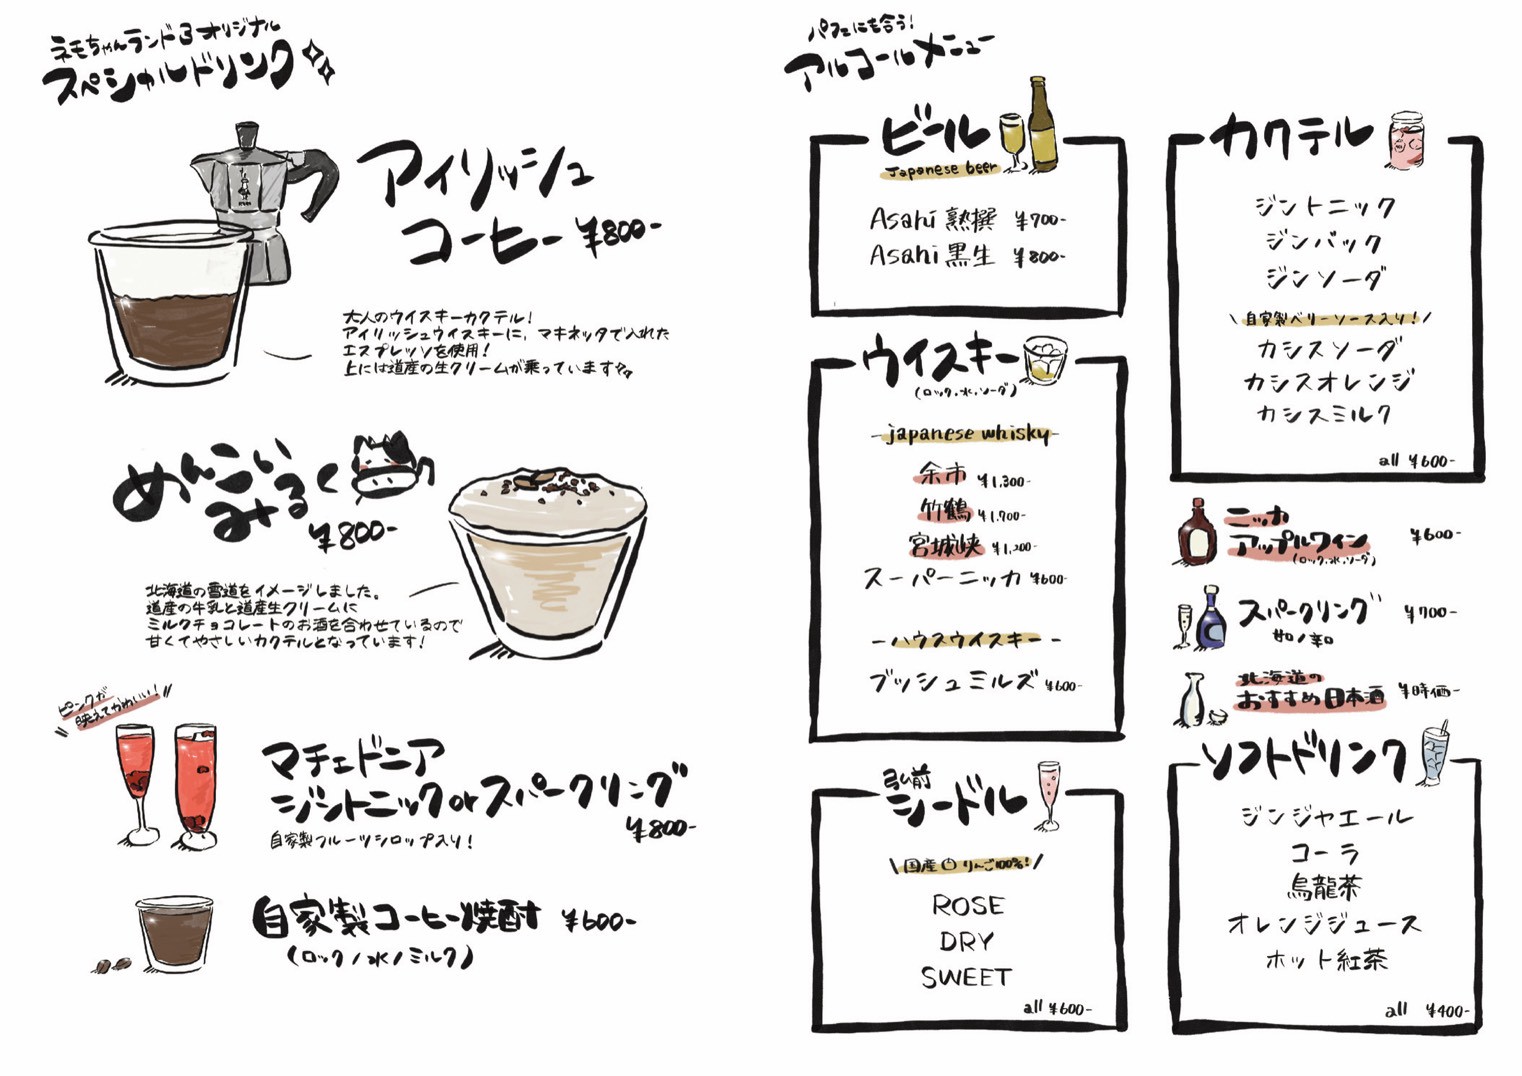 ネモちゃんランド3オリジナル
スペシャルドリンク
アイリッシュ
コーヒー ¥800-
大人のウイスキーカクテル!
アイリッシュウイスキーに、マキネッタで入れた
エスプレッソを使用!
上には道産の生クリームが乗っています
めんこい
みるく
¥800-
北海道の雪道をイメージしました。
道産の牛乳と道産生クリームに
ミルクチョコレートのお酒を合わせているので
甘くてやさしいカクテルとなっています!
ピンクが
映えてかわいい!
マチェドニア
ジントニックorスパークリング
¥800-
自家製フルーツシロップ入り!
自家製コーヒー焼酎 ¥600-
(ロック/水/ミルク)
パフェにも合う!
アルコールメニュー
ビール
Japanese beer
Asahi 熟撰 ¥700-
Asahi 黒生 ¥800-
ウイスキー
(ロック、水、ソーダ)
-japanese whisky-
余市 ¥1,300-
竹鶴 ¥1,700-
宮城峡 ¥1,200-
スーパーニッカ ¥600-
-ハウスウイスキー-
ブッシュミルズ ¥600-
弘前
シードル
\国産りんご100%!/
ROSE
DRY
SWEET
all ¥600-
カクテル
ジントニック
ジンバック
ジンソーダ
\自家製ベリーソース入り!/
カシスソーダ
カシスオレンジ
カシスミルク
all ¥600-
ニッカ
アップルワイン ¥600-
(ロック、水、ソーダ)
スパークリング ¥700-
甘/辛
北海道の
おすすめ日本酒 ¥時価-
ソフトドリンク
ジンジャエール
コーラ
烏龍茶
オレンジジュース
ホット紅茶
all ¥400-